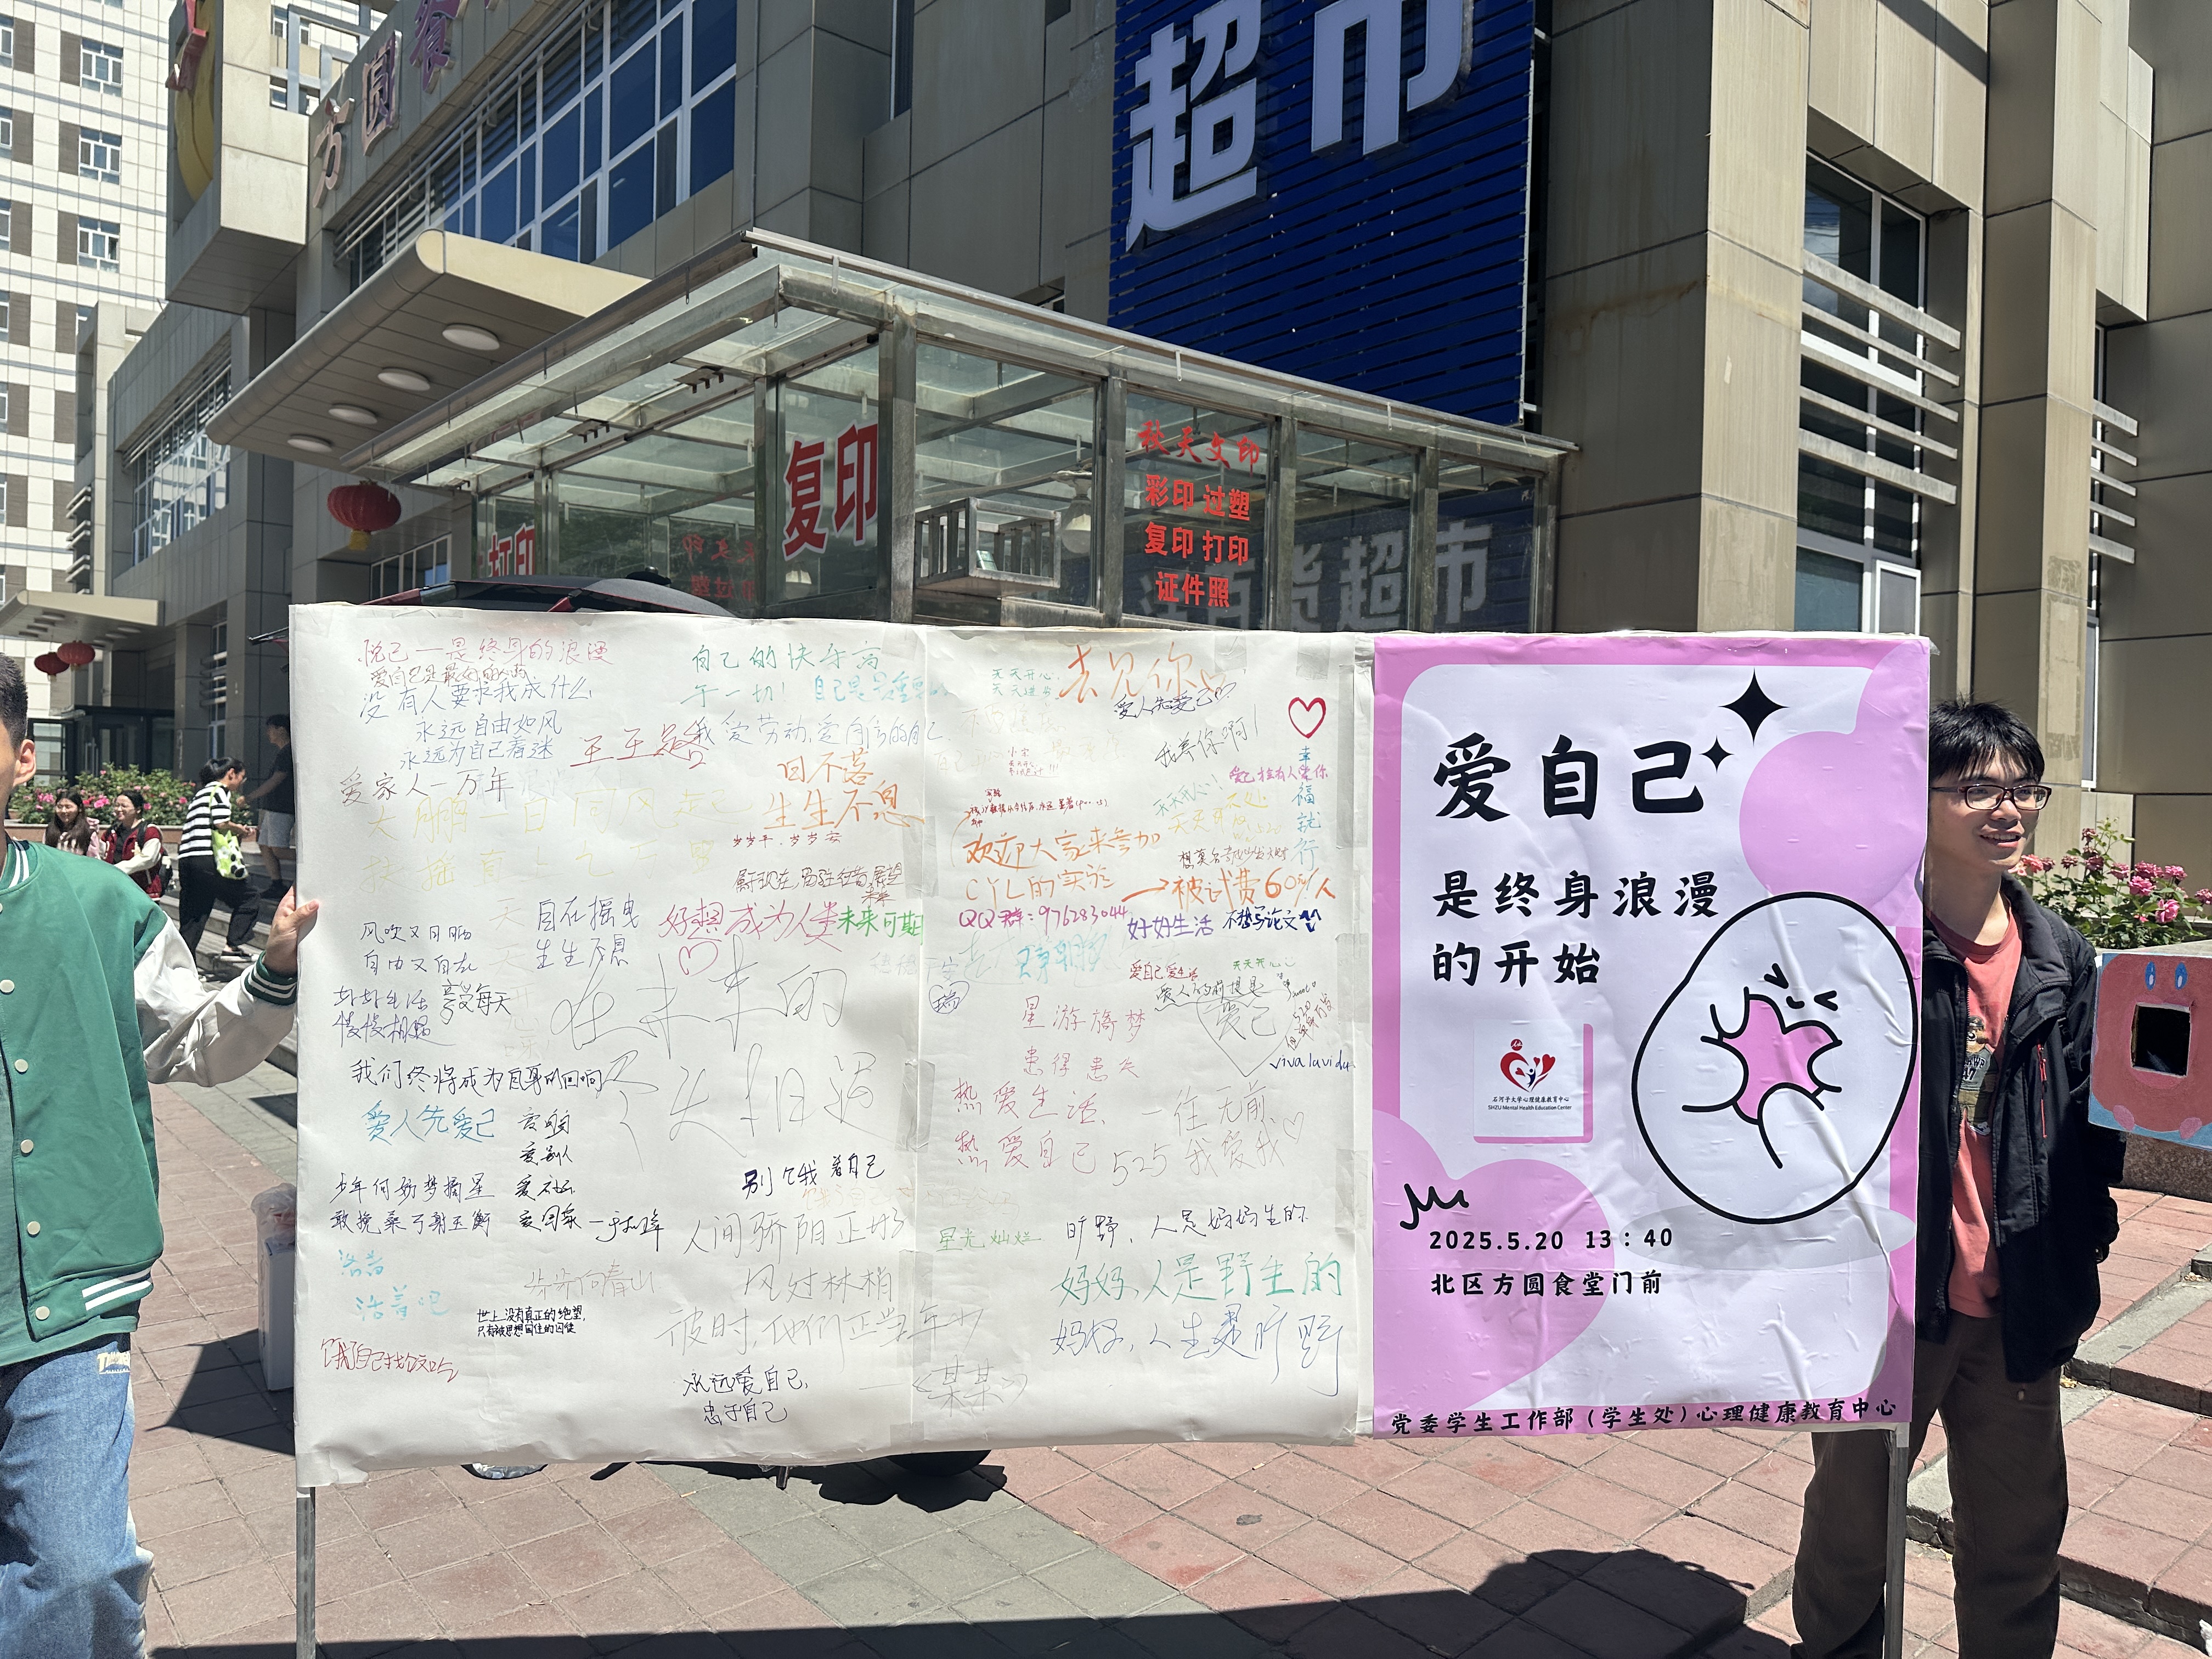 方圆餐
超市
复印
打印
秋天文印
彩印 过塑
复印 打印
证件照
百货超市
悦己一是终身的浪漫
爱自己是最好的
没有人要求我成什么
永远自由如风
永远为自己着迷
爱家人一万年
自己的快乐高
于一切!
自己是最重要
我爱劳动,爱自信的自己
日不落
生生不息
大鹏一日同风起
扶摇直上九万里
岁岁平,岁岁安
风吹又日晒
自由又自在
自在摇曳
生生不息
好想成为人类
未来可期
好好生活
慢慢相遇
享受每天
在未来的
某天相遇
我们终将成为自身的回响
爱人先爱己
爱别人
爱国家
少年何妨梦摘星
敢挽桑弓射玉衡
别饿着自己
人间骄阳正好
风过林梢
彼时,他们正当年少
——《某某》
步步向青山
活着
活着吧
世上没有真正的绝望,
只有被思想困住的囚徒
饿了自己找饭吃
永远爱自己,
忠于自己
天天开心,
天天进步
去见你
爱人先爱己
我养你啊!
幸福就行
爱己才有人爱你
欢迎大家来参加
CYL的实验
→被试费60/人
QQ群:976283044
好好生活
不想写论文
爱自己爱生活
天天开心
爱人的前提是
爱己
viva la vida
星游旖梦
患得患失
热爱生活、
热爱自己
往无前
525我爱我♡
星光灿烂
旷野,人是妈妈生的
妈妈,人是野生的
妈妈,人生是旷野
爱自己
是终身浪漫
的开始
石河子大学心理健康教育中心
SHZU Mental Health Education Center
2025.5.20 13:40
北区方圆食堂门前
党委学生工作部(学生处)心理健康教育中心